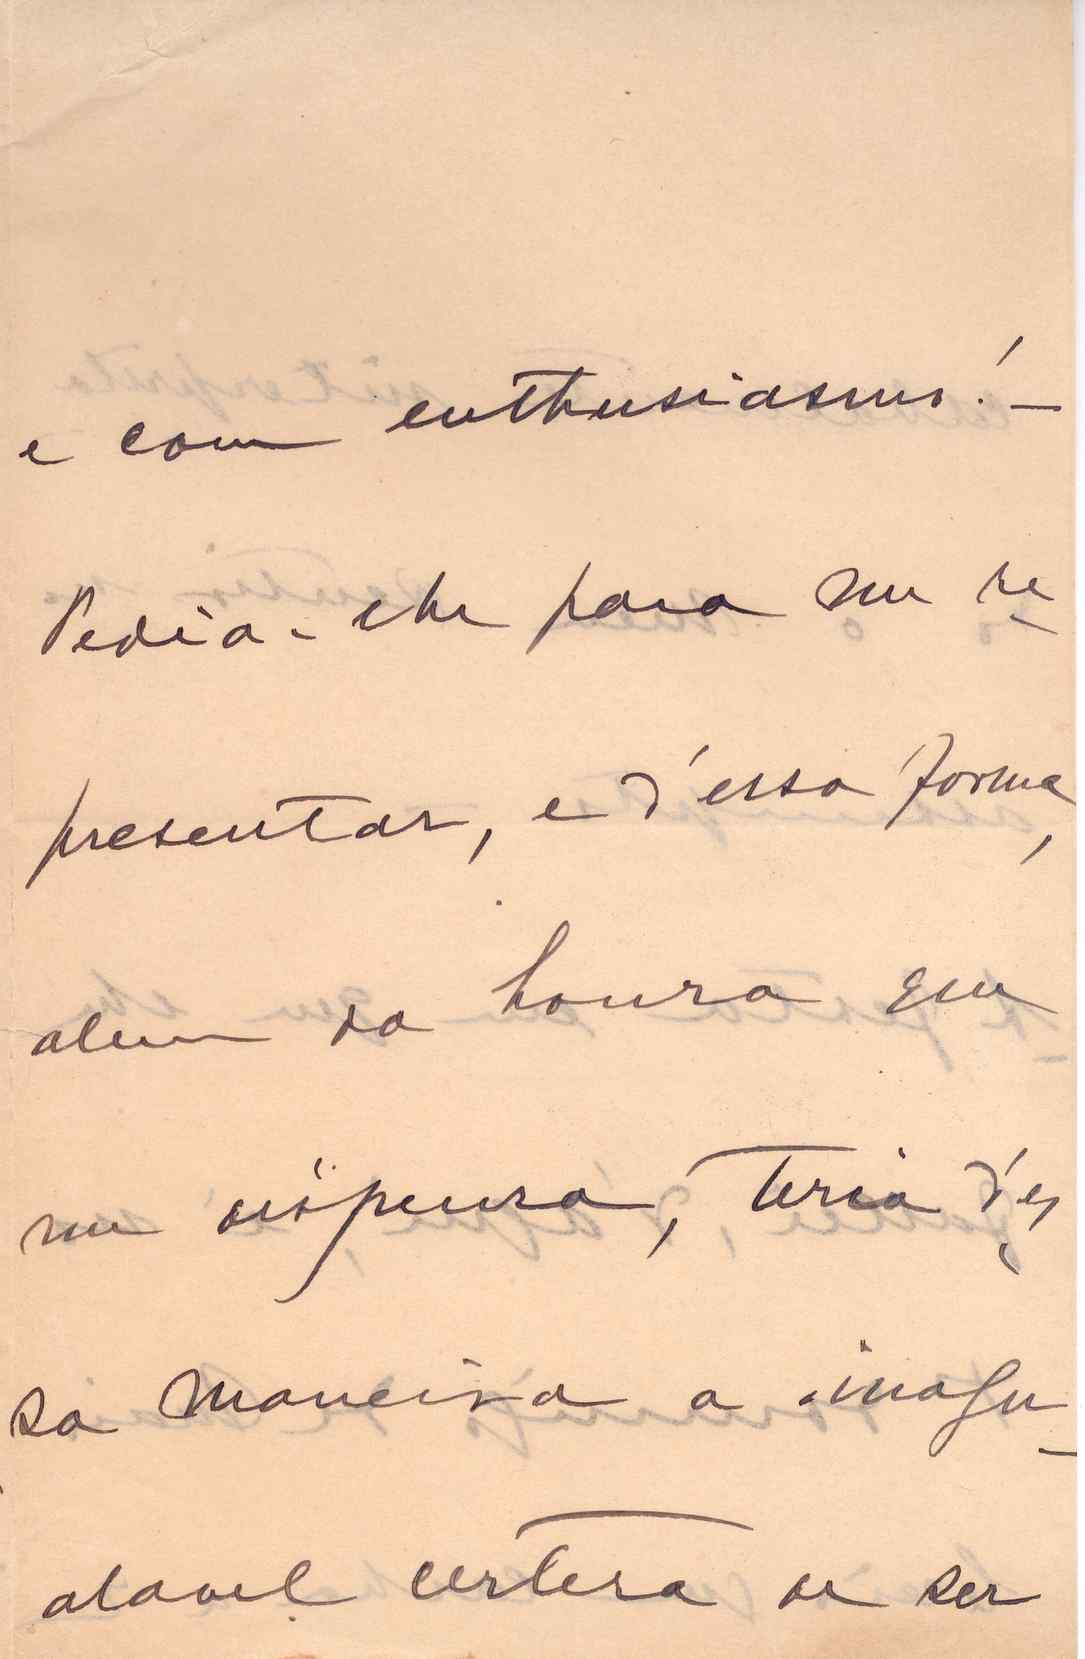 e com enthusiasmo! —
Pedia-lhe para me re
presentar, e d'essa forma,
alem da honra que
me dispensa, teria d'es
sa maneira a inogu-
alavel certeza de ser